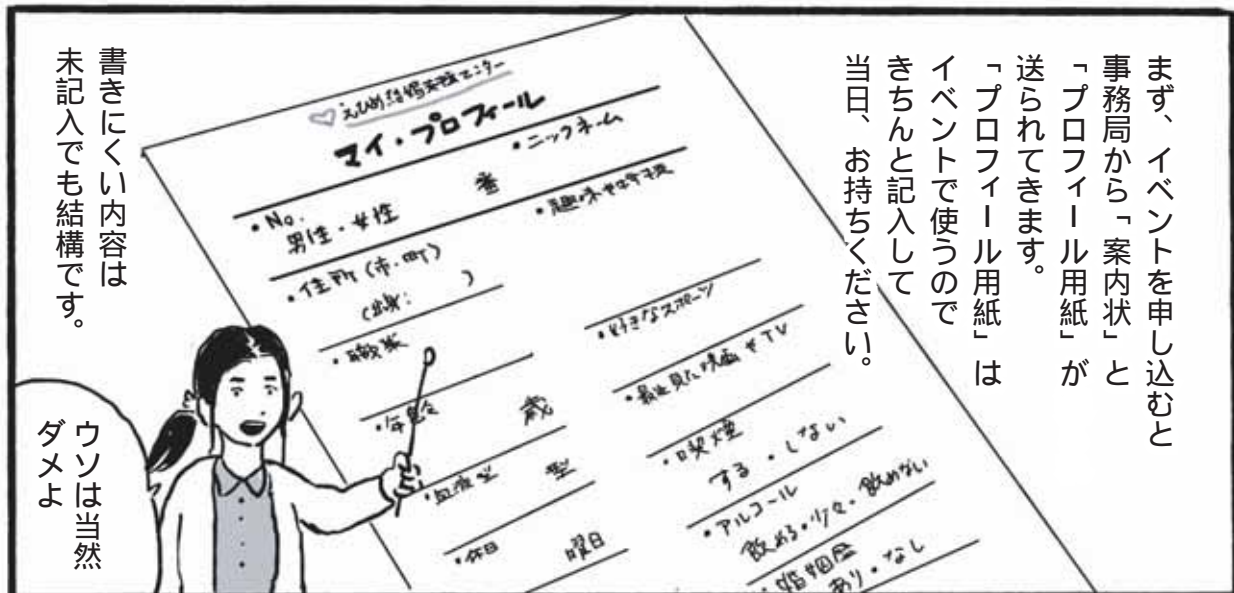 まず、イベントを申し込むと
事務局から「案内状」と
「プロフィール用紙」が
送られてきます。
「プロフィール用紙」は
イベントで使うので
きちんと記入して
当日、お持ちください。
♡えひめ結婚支援センター
マイ・プロフィール
・No. 番
男性・女性
・ニックネーム
・住所(市・町)
(出身: )
・趣味や特技
・職業
・好きなスポーツ
・年齢 歳
・最近見た映画やTV
・血液型 型
・喫煙
する・しない
・休日 曜日
・アルコール
飲める・少々・飲めない
・婚姻歴
あり・なし
書きにくい内容は
未記入でも結構です。
ウソは当然
ダメよ